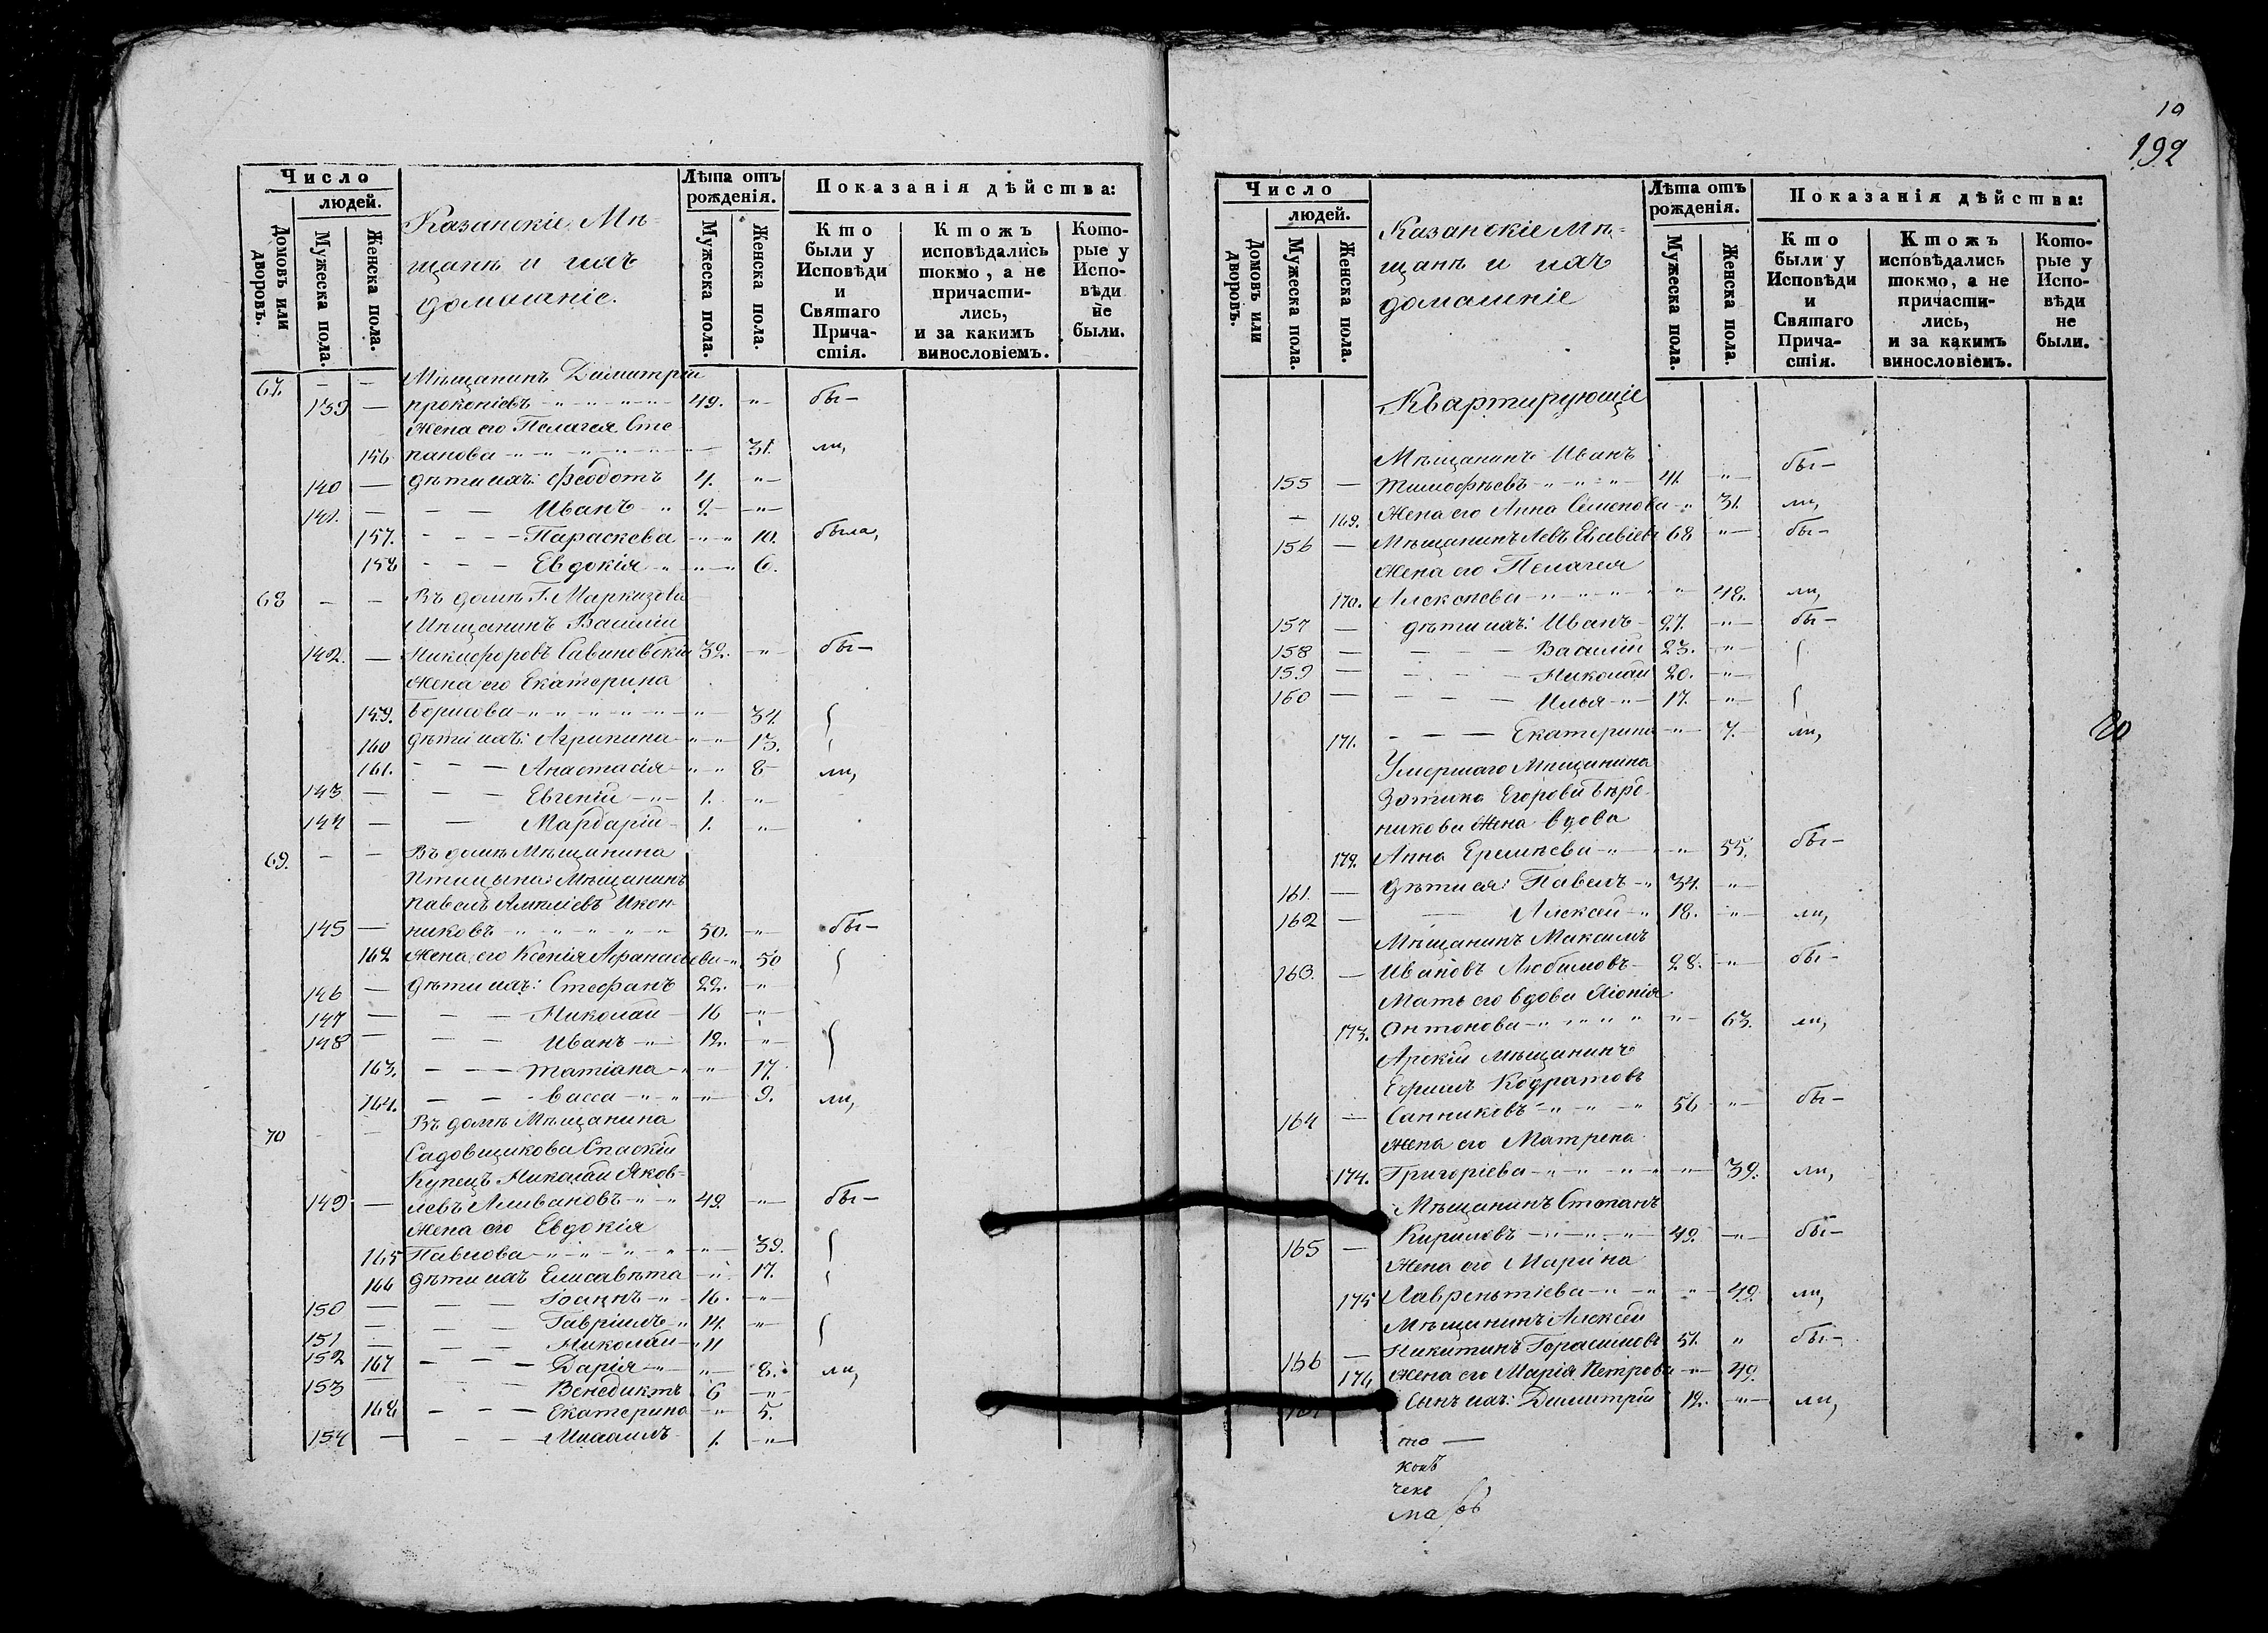 Число
людей.
Домовъ или дворовъ.
Мужеска пола.
Женска пола.
Казанскіе Мѣ-
щанѣ и ихъ
домашніе.
Лѣта отъ рожденія.
Мужеска пола.
Женска пола.
Показанія дѣйства:
Кто были у Исповѣди и Святаго Прича- стія.
Ктожъ исповѣдались токмо, а не причасти- лись, и за какимъ винословіемъ.
Кото- рые у Испо- вѣди не были.
67. — — Мѣщанинъ Димитрій
139 — прокопіевъ 49. бы-
Жена его Пелагея Сте
156 панова 31. ли,
140 — дѣти ихъ: Феодотъ 4.
141. — Иванъ 2.
157. Параскева 10. была,
158 Евдокія 6.
68 — — Въ домѣ Г. Маркизова
Мѣщанинъ Василій
142. — Никифоровъ Савиновскій 32. бы-
Жена его Екатерина
159. Борисова 34.
160 дѣти ихъ: Агрипина 13.
161. Анастасія 8 ли,
143 — Евгеній 1.
144 — Мардарій 1.
69. — — Въ домѣ Мѣщанина
Птицына: Мѣщанинъ
Павелъ Икон-
145 — никовъ 50. бы-
162 Жена его Ксенія Афанасьева 50
146 — дѣти ихъ: Стефанъ 22.
147 — Николай 16
148 — Иванъ 12.
163. Татіана 17.
164. Васса 9. ли,
70 — — Въ домѣ Мѣщанина
Садовщикова Спаскій
Купецъ Николай Яков-
149 — левъ Аливановъ 49. бы-
Жена его Евдокія
165 Павлова 39.
166 дѣти ихъ Елисавѣта 17.
150 — Іоаннъ 16.
151 — Гавріилъ 14.
152 — Николай 11
167 Дарія 8. ли,
153 — Венедиктъ 6
168 Екатерина 5.
154 — Михаилъ 1.
19
192
Число
людей.
Домовъ или дворовъ.
Мужеска пола.
Женска пола.
Казанскіе Мѣ-
щанѣ и ихъ
домашніе
Лѣта отъ рожденія.
Мужеска пола.
Женска пола.
Показанія дѣйства:
Кто были у Исповѣди и Святаго Прича- стія.
Ктожъ исповѣдались токмо, а не причасти- лись, и за какимъ винословіемъ.
Кото- рые у Испо- вѣди не были.
Квартирующіе
Мѣщанинъ Иванъ
155 — Тимофѣевъ 41. бы-
— 169. Жена его Анна Семенова 31. ли,
156 — Мѣщанинъ Левъ 68 бы-
Жена его Пелагея
170. Алексѣева 48. ли,
157 — дѣти ихъ: Иванъ 27. бы-
158 — Василій 23.
159 — Николай 20.
160 — Илья 17.
171. Екатерина 7. ли,
Умершаго Мѣщанина
Зотика Егорова
никова Жена вдова
172. Анна Еремѣева 55. бы-
161. — дѣти ея: Павелъ 34.
162 — Алексѣй 18. ли,
Мѣщанинъ Максимъ
163. — Ивановъ Любимовъ 28. бы-
Мать его вдова Хіонія
173. Антонова 63. ли,
Арскій Мѣщанинъ
Ефимъ Кодратовъ
164 — Санниковъ 56 бы-
Жена его Матрена
174. Григоріева 39. ли,
Мѣщанинъ Стопанъ
165 — Кириловъ 49. бы-
Жена его Марина
175 Лаврентіева 49. ли,
Мѣщанинъ Алексѣй
166 — Никитинъ Горасимовъ 51. бы-
176 Жена его Марія Петрова 49.
Сынъ ихъ: Димитрій 12. ли,
то —